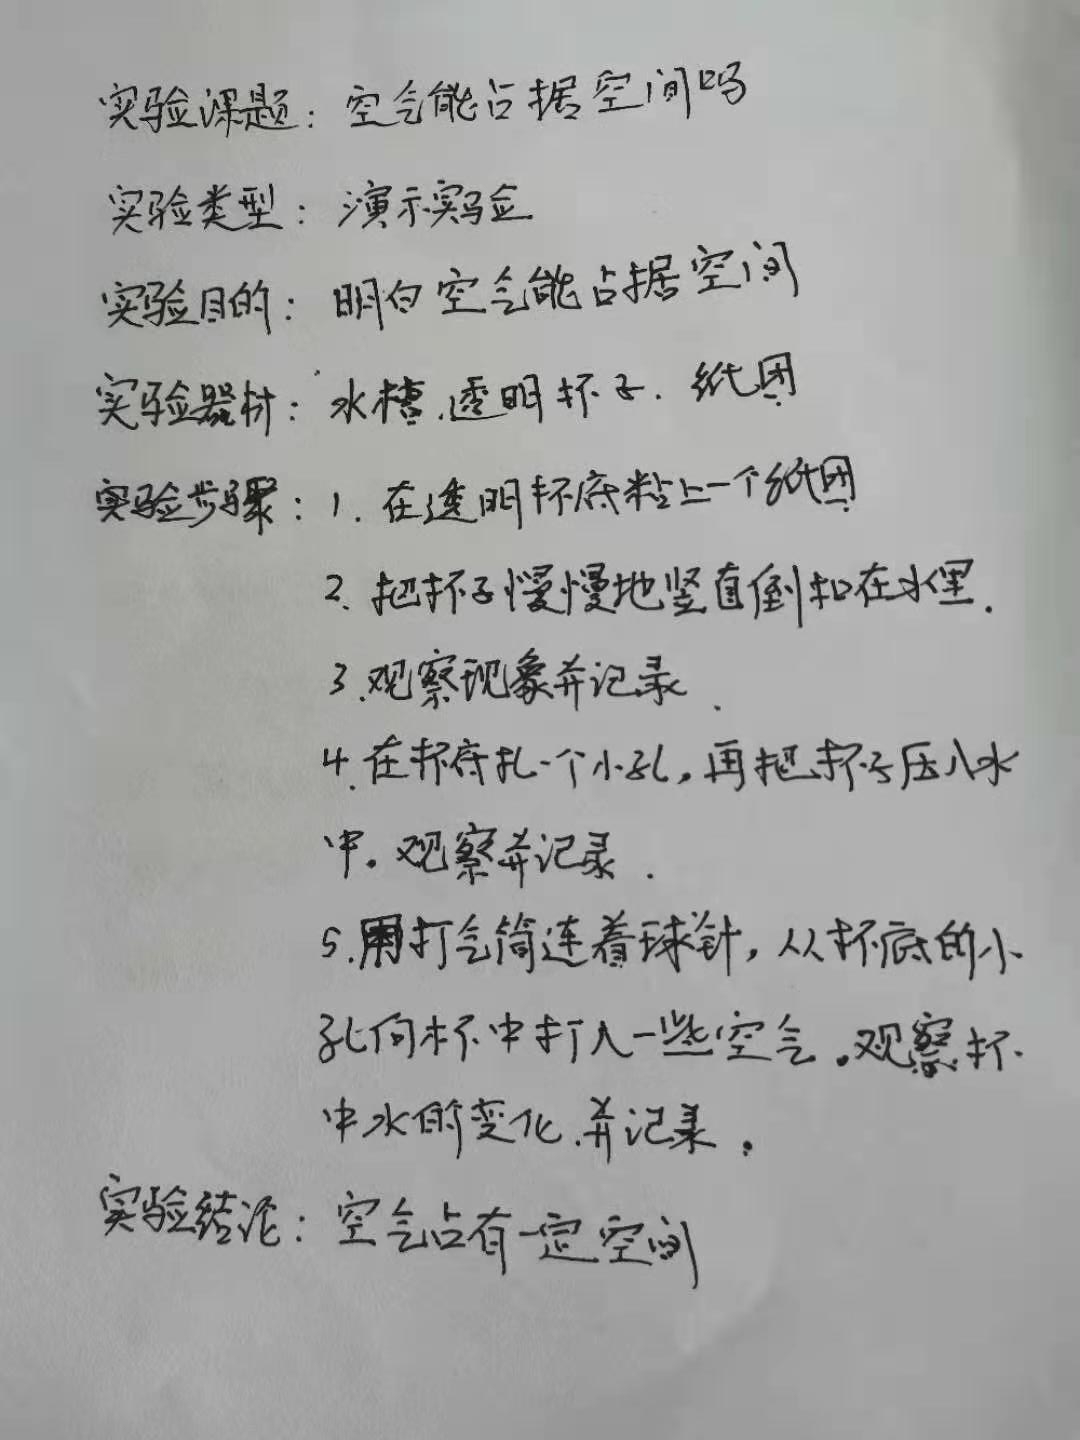 实验课题：空气能占据空间吗
实验类型：演示实验
实验目的：明白空气能占据空间
实验器材：水槽.透明杯子.纸团
实验步骤：1.在透明杯底粘上一个纸团
2.把杯子慢慢地竖直倒扣在水里.
3.观察现象并记录.
4.在杯底扎一个小孔,再把杯子压入水
中。观察并记录.
5.用打气筒连着球针,从杯底的小
孔向杯中打入一些空气.观察杯
中水的变化.并记录.
实验结论：空气占有一定空间